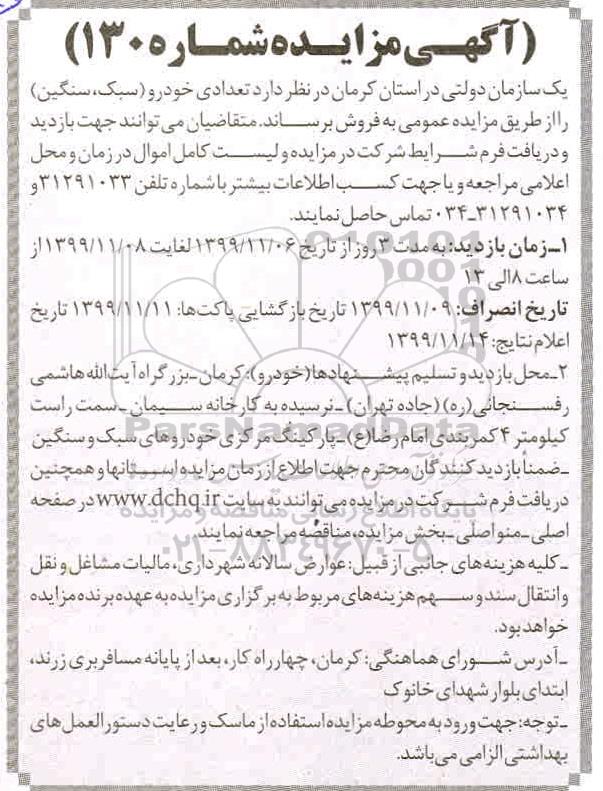 (آگهی مزایده شماره ۱۳۰)
یک سازمان دولتی در استان کرمان در نظر دارد تعدادی خودرو (سبک، سنگین)
را از طریق مزایده عمومی به فروش برساند. متقاضیان می توانند جهت بازدید
و دریافت فرم شرایط شرکت در مزایده و لیست کامل اموال در زمان و محل
اعلامی مراجعه و یا جهت کسب اطلاعات بیشتر با شماره تلفن ۳۱۲۹۱۰۳۳ و
۰۳۴-۳۱۲۹۱۰۳۴ تماس حاصل نمایند.
۱ـ زمان بازدید: به مدت ۳ روز از تاریخ ۱۳۹۹/۱۱/۰۶ لغایت ۱۳۹۹/۱۱/۰۸ از
ساعت ۸ الی ۱۳
تاریخ انصراف: ۱۳۹۹/۱۱/۰۹ تاریخ بازگشایی پاکت‌ها: ۱۳۹۹/۱۱/۱۱ تاریخ
اعلام نتایج: ۱۳۹۹/۱۱/۱۴
۲ـ محل بازدید و تسلیم پیشنهادها (خودرو): کرمان ـ بزرگراه آیت الله هاشمی
رفسنجانی (ره) (جاده تهران) ـ نرسیده به کارخانه سیمان ـ سمت راست
کیلومتر ۴ کمربندی امام رضا(ع) ـ پارکینگ مرکزی خودروهای سبک و سنگین
ـ ضمناً بازدید کنندگان محترم جهت اطلاع از زمان مزایده استانها و همچنین
دریافت فرم شرکت در مزایده می توانند به سایت www.dchq.ir در صفحه
اصلی ـ منو اصلی ـ بخش مزایده، مناقصه مراجعه نمایند
ـ کلیه هزینه های جانبی از قبیل: عوارض سالانه شهرداری، مالیات مشاغل و نقل
و انتقال سند و سهم هزینه های مربوط به برگزاری مزایده به عهده برنده مزایده
خواهد بود.
ـ آدرس شورای هماهنگی: کرمان، چهارراه کار، بعد از پایانه مسافربری زرند،
ابتدای بلوار شهدای خانوک
ـ توجه: جهت ورود به محوطه مزایده استفاده از ماسک و رعایت دستورالعمل های
بهداشتی الزامی می باشد.
ParsNamadData
پایگاه اطلاع رسانی مناقصه و مزایده
۰۲۱-۸۸۳۴۹۶۷۰-۵